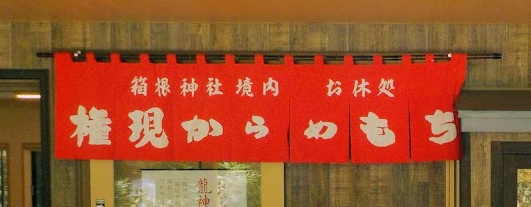 箱根神社境内 お休処
権現からめもち
龍神